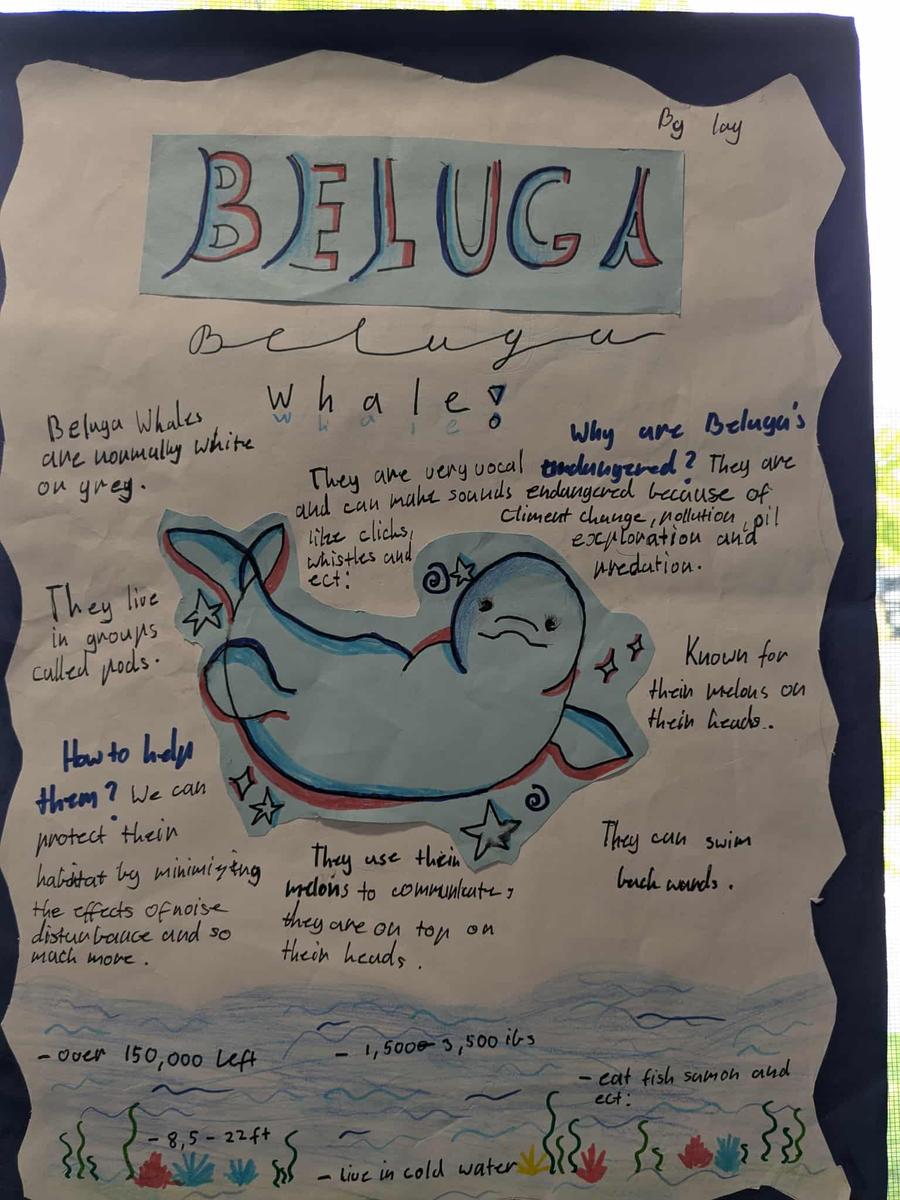 By lay
BELUGA
Beluga
whale!
whale
Beluga Whales
are normally white
or grey.
They are very vocal
and can make sounds
like clicks,
whistles and
ect:
Why are Beluga's
endangered? They are
endangered because of
climent change, pollution, oil
exploration and
predation.
They live
in groups
called pods.
Known for
their melons on
their heads..
How to help
them? We can
protect their
habitat by minimizing
the effects of noise
disturbance and so
much more.
They use their
melons to communicate,
they are on top on
their heads.
They can swim
backwards.
- over 150,000 left
- 1,500 - 3,500 ibs
- eat fish samon and
ect:
- 8,5 - 22ft
- Live in cold water